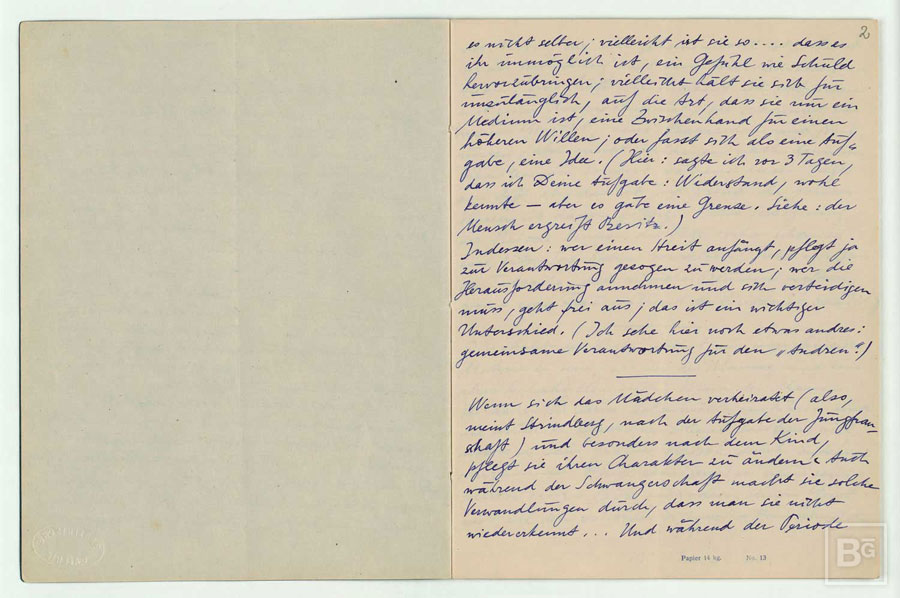 2
es nicht selber; vielleicht ist sie so.... dass es
ihr unmöglich ist, ein Gefühl wie Schuld
hervorzubringen; vielleicht hält sie sich für
unzulänglich, auf die Art, dass sie nur ein
Medium ist, eine Zwischenhand für einen
höheren Willen; oder fasst sich als eine Auf-
gabe, eine Idee. (Hier: sagte ich vor 3 Tagen,
dass ich Deine Aufgabe: Widerstand, wohl
kennte – aber es gäbe eine Grenze. Siehe: der
Mensch ergreift Besitz.)
Indessen: wer einen Streit anfängt, pflegt ja
zur Verantwortung gezogen zu werden; wer die
Herausforderung annehmen und sich verteidigen
muss, geht frei aus; das ist ein wichtiger
Unterschied. (Ich sehe hier noch etwas andres:
gemeinsame Verantwortung für den „Andren".)
Wenn sich das Mädchen verheiratet (also,
meint Strindberg, nach der Aufgabe der Jungfrau-
schaft) und besonders nach dem Kind,
pflegt sie ihren Charakter zu ändern. Auch
während der Schwangerschaft macht sie solche
Verwandlungen durch, dass man sie nicht
wiedererkennt... Und während der Periode
Papier 14 kg. No. 13
BG